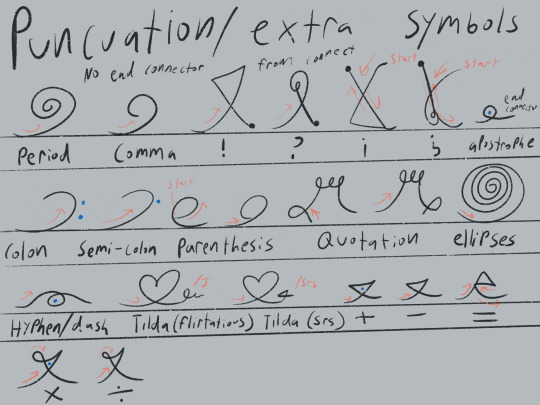 Puncuation/extra symbols
No end connector
from connect
start
start
end connector
Period Comma ! ? ¡ ¿ apostrophe
start
Colon Semi-colon Parenthesis Quotation ellipses
/J /srs
Hyphen/dash Tilda (flirtatious) Tilda (srs) + − =
× ÷